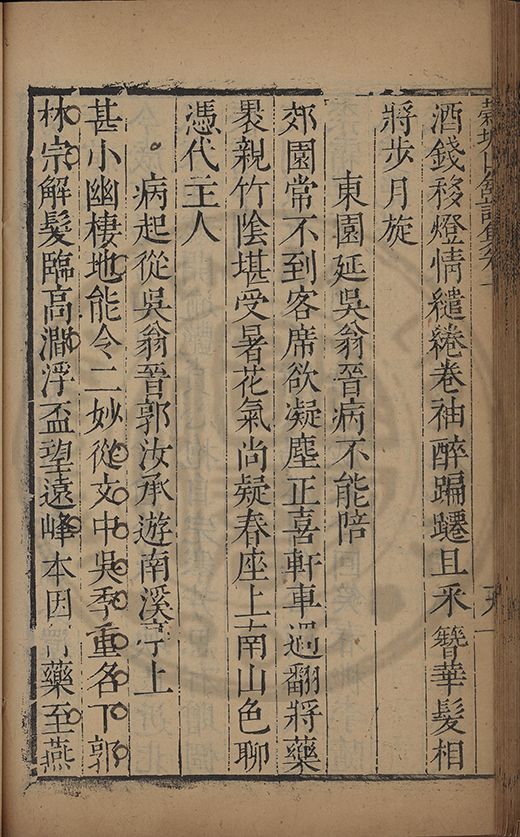 酒錢移燈情繾綣卷袖醉蹁躚且釆簪華髮相
將步月旋
東園延吳翁晉病不能陪
郊園常不到客席欲凝塵正喜軒車過翻將藥
褁親竹陰堪受暑花氣尚疑春座上南山色聊
憑代主人
病起從吳翁晉郭汝承遊南溪亭上
甚小幽棲地能令二妙從文中吳季重名下郭
林宗解髮臨高澗浮盃望遠峰本因行藥至燕